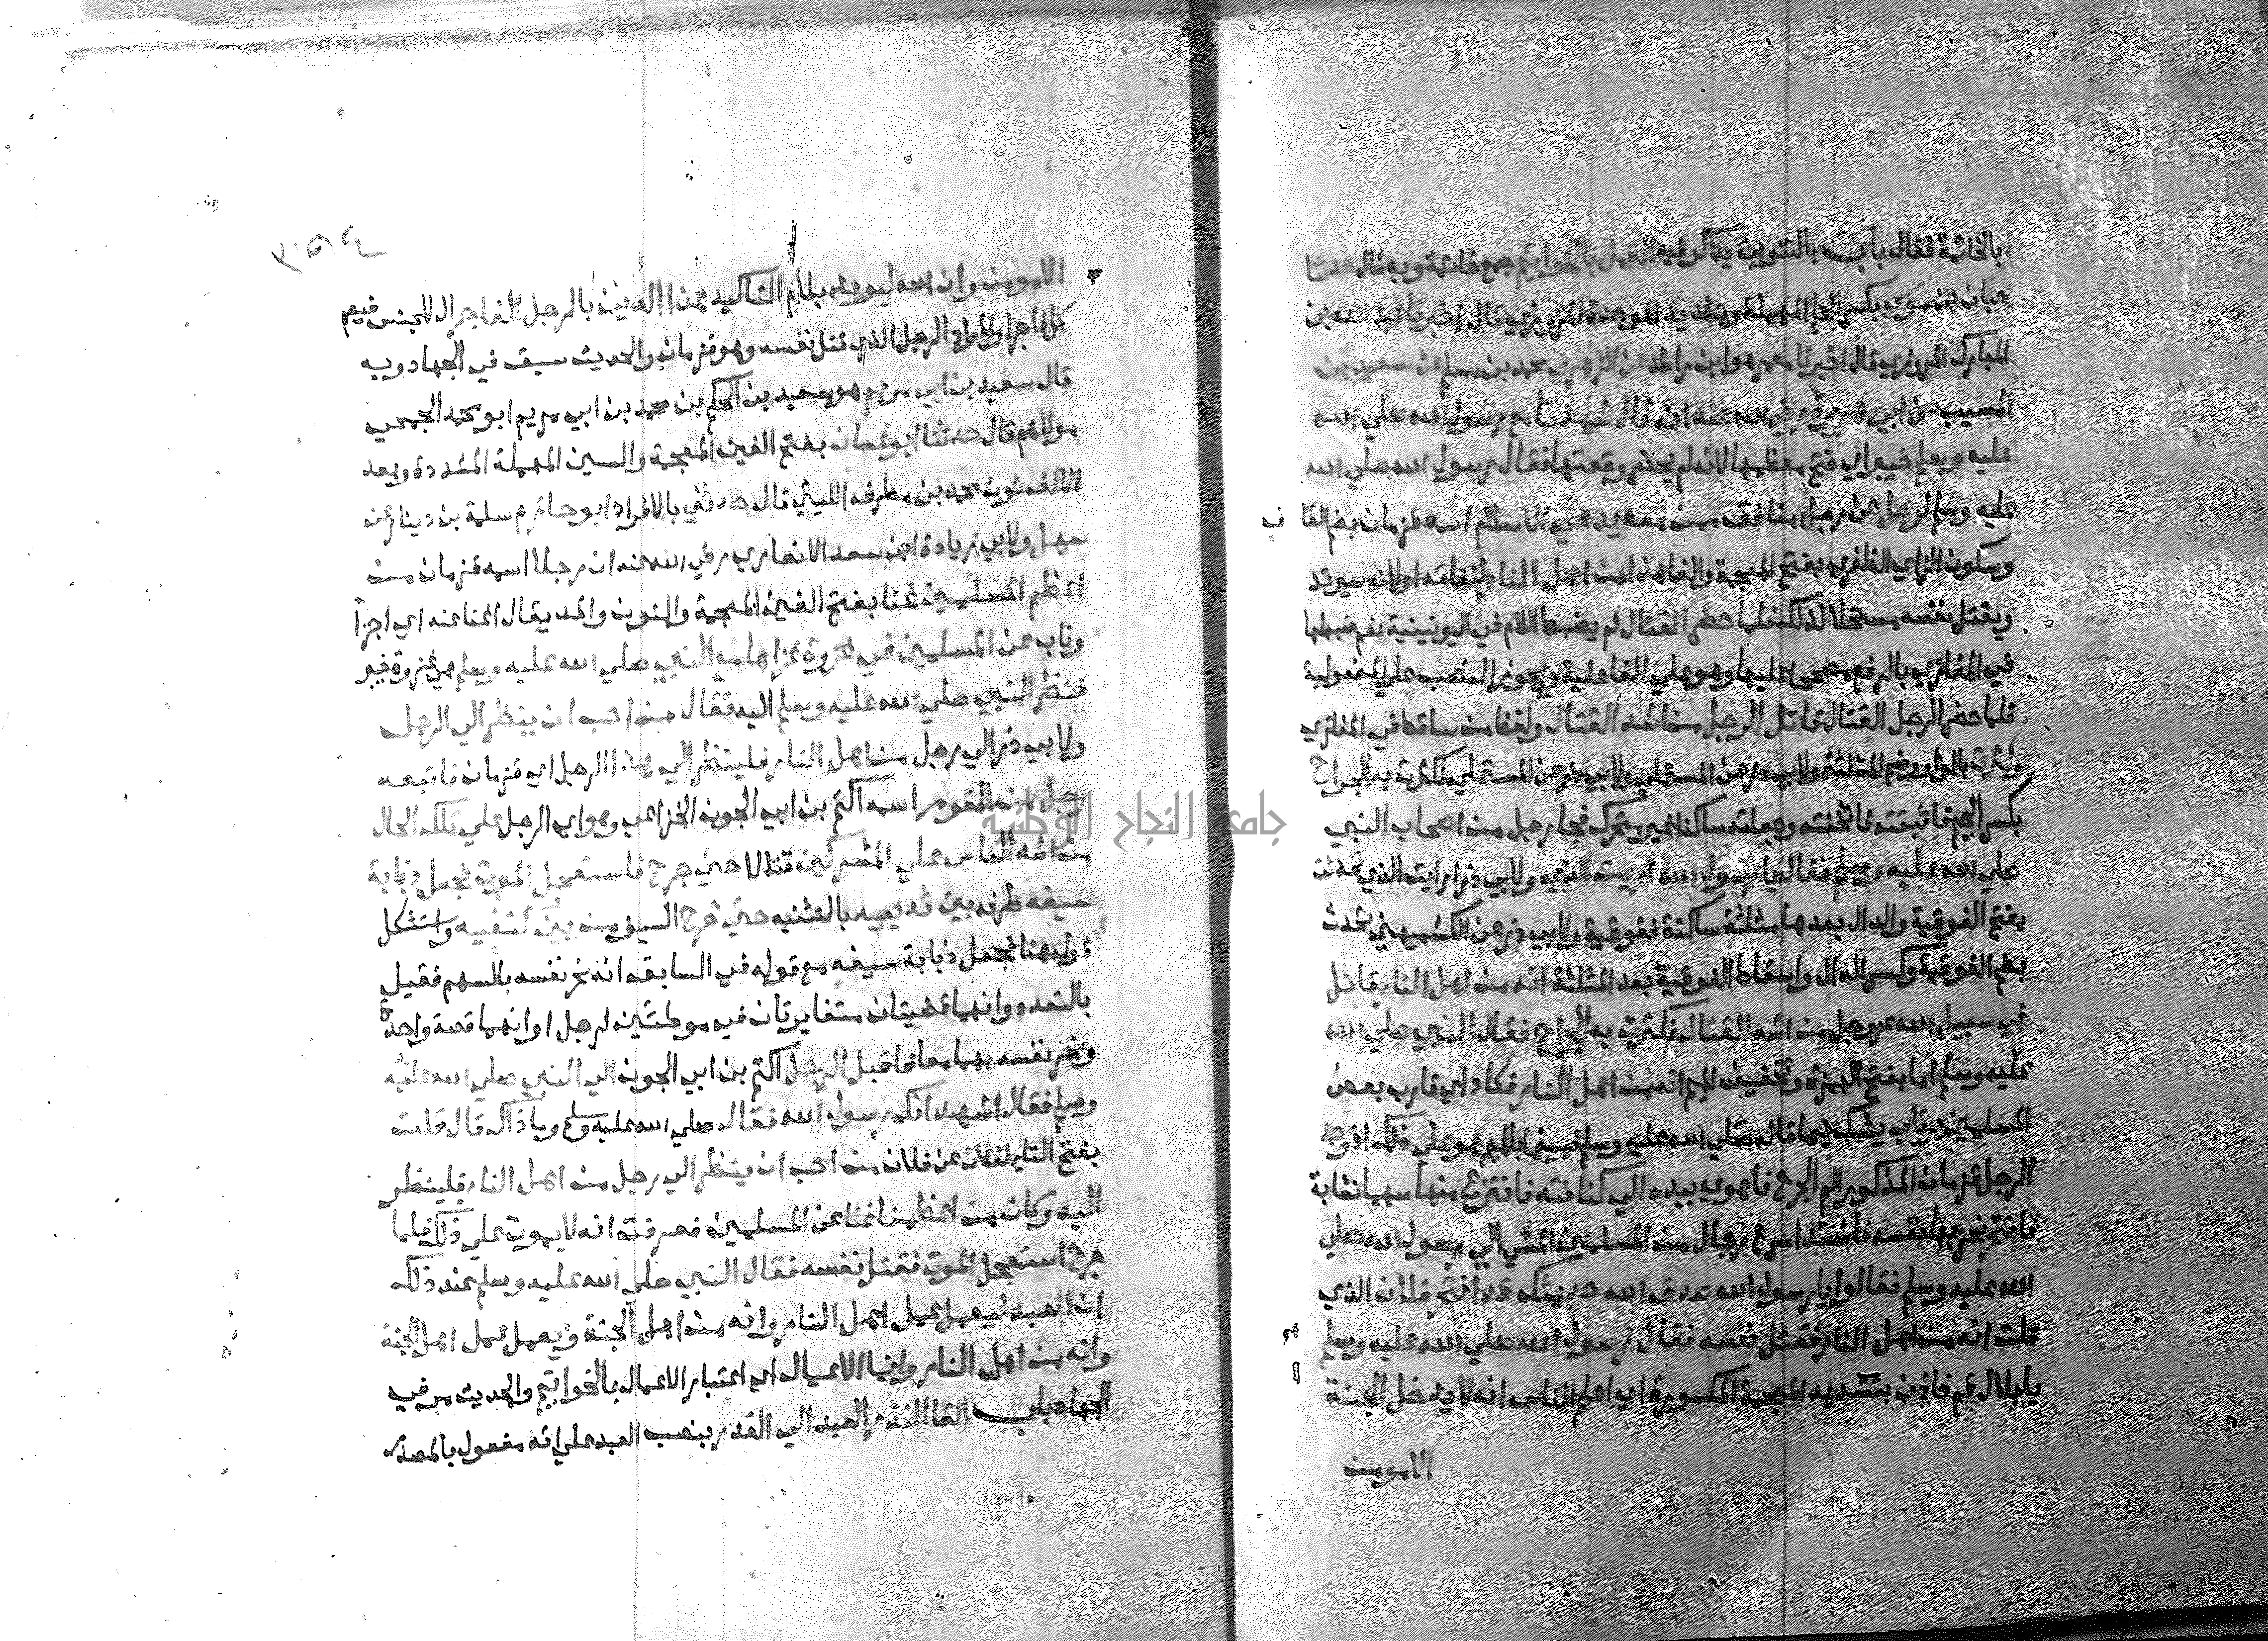 بالخاتمة فقال باب بالتنوين يذكر فيه العمل بالخواتيم جمع خاتمة وبه قال حدثنا
حبان بن موسي بكسر الحا المهملة وتشديد الموحدة المروزي قال اخبرنا عبد الله بن
المبارك المروزي قال اخبرنا معمر هو ابن راشد عن الزهري محمد بن مسلم عن سعيد بن
المسيب عن ابي هريرة رضي الله عنه انه قال شهدنا مع رسول الله صلي الله
عليه وسلم خيبر اي فتح معظمها لانه لم يحضر وقعتها فقال رسول الله صلي الله
عليه وسلم لرجل عن رجل منافق ممن معه يدعي الاسلام اسمه قزمان بضم القاف
وسكون الزاي الظفري بفتح المعجمة والفا هذا من اهل النار لنفاقه او لانه سيرتد
ويقتل نفسه مستحلا لذلك فلما حضر القتال لم يضبط اللام في اليونينية نعم ضبطها
في المغازي بالرفع مصححا عليها وهو علي الفاعلية ويجوز النصب علي المفعولية
فلما حضر الرجل القتال قاتل الرجل من اشد القتال ولفظ من ساقط في المغازي
وكثرت بالواو وضم المثلثة ولابي ذر عن المستملي ولابي ذر عن المستملي فكثرت به الجراح
بكسر الجيم فاثبتته فاثخنته وجعلته ساكنا غير متحرك فجا رجل من اصحاب النبي
صلي الله عليه وسلم فقال يا رسول الله اريت الذي ولابي ذر ارايت الذي تحدثت
بفتح الفوقية والدال بعدها مثلثة ساكنة ففوقية ولابي ذر عن الكشميهني تحدث
بضم الفوقية وكسر الدال واسقاط الفوقية بعد المثلثة انه من اهل النار قاتل
في سبيل الله عز وجل من اشد القتال فكثرت به الجراح فقال النبي صلي الله
عليه وسلم اما بفتح الهمزة وتخفيف الميم انه من اهل النار فكاد اي قارب بعض
المسلمين يرتاب يشك فيما قاله صلي الله عليه وسلم فبينما بالميم هو علي ذلك اذ وجد
الرجل قزمان المذكور الم الجرح فاهوي بيده الي كنانته فانتزع منها سهما نشابة
فانتحر نحر بها نفسه فاشتد اسرع رجال من المسلمين المشي الي رسول الله صلي
الله عليه وسلم فقالوا يا رسول الله صدق الله حديثك قد انتحر فلان الذي
قلت انه من اهل النار فقتل نفسه فقال رسول الله صلي الله عليه وسلم
يا بلال قم فاذن بتشديد المعجمة المكسورة اي اعلم الناس انه لا يدخل الجنة
الا مومن
الا مومن وان الله ليويد بلام التاكيد هذا الدين بالرجل الفاجر ال للجنس فيعم
كل فاجر او المراد الرجل الذي قتل نفسه وهو قزمان والحديث سبق في الجهاد وبه
قال سعيد بن ابي مريم هو سعيد بن الحكم بن محمد بن ابي مريم ابو محمد الجمحي
مولاهم قال حدثنا ابو غسان بفتح الغين المعجمة والسين المهملة المشددة وبعد
الالف نون محمد بن مطرف الليثي قال حدثني بالافراد ابو حازم سلمة بن دينار عن
سهل ولابي زيادة ابن سعد الانصاري رضي الله عنه ان رجلا اسمه قزمان من
اعظم المسلمين غنا بفتح الغين المعجمة والنون والمد يقال اغنا عنه اي اجزا
وناب عن المسلمين في غزوة غزاها مع النبي صلي الله عليه وسلم هي غزوة خيبر
فنظر النبي صلي الله عليه وسلم اليه فقال من احب ان ينظر الي الرجل
ولابي ذر الي رجل من اهل النار فلينظر الي هذا الرجل اي قزمان فاتبعه
رجل من القوم اسمه اكثم بن ابي الجون الخزاعي وهو اي الرجل علي تلك الحال
من اشد الناس علي المشركين قتالا حتي جرح فاستعجل الموت فجعل ذبابة
سيفه طرفه بين ثدييه بالتثنية حتي خرج السيف من بين كتفيه واستشكل
قوله هنا فجعل ذبابة سيفه مع قوله في السابقه انه نحر نفسه بالسهم فقيل
بالتعدد وانهما قصيتان متغايرتان في موطنين لرجل او انهما قصة واحدة
ونحر نفسه بهما معا فاقبل الرجل اكثم بن ابي الجون الي النبي صلي الله عليه
وسلم فقال اشهد انك رسول الله فقال صلي الله عليه وسلم وما ذاك قال قلت
بفتح التا لفلان عن فلان من احب ان ينظر الي رجل من اهل النار فلينظر
اليه وكان من اعظمنا غنا عن المسلمين فعرفت انه لا يموت علي ذلك فلما
جرح استعجل الموت فقتل نفسه فقال النبي صلي الله عليه وسلم عند ذلك
ان العبد ليعمل عمل اهل النار وانه من اهل الجنة ويعمل عمل اهل الجنة
وانه من اهل النار وانما الاعمال اي اعتبار الاعمال بالخواتيم والحديث مر في
الجهاد باب القا النذر العبد الي القدر بنصب العبد علي انه مفعول بالمصدر